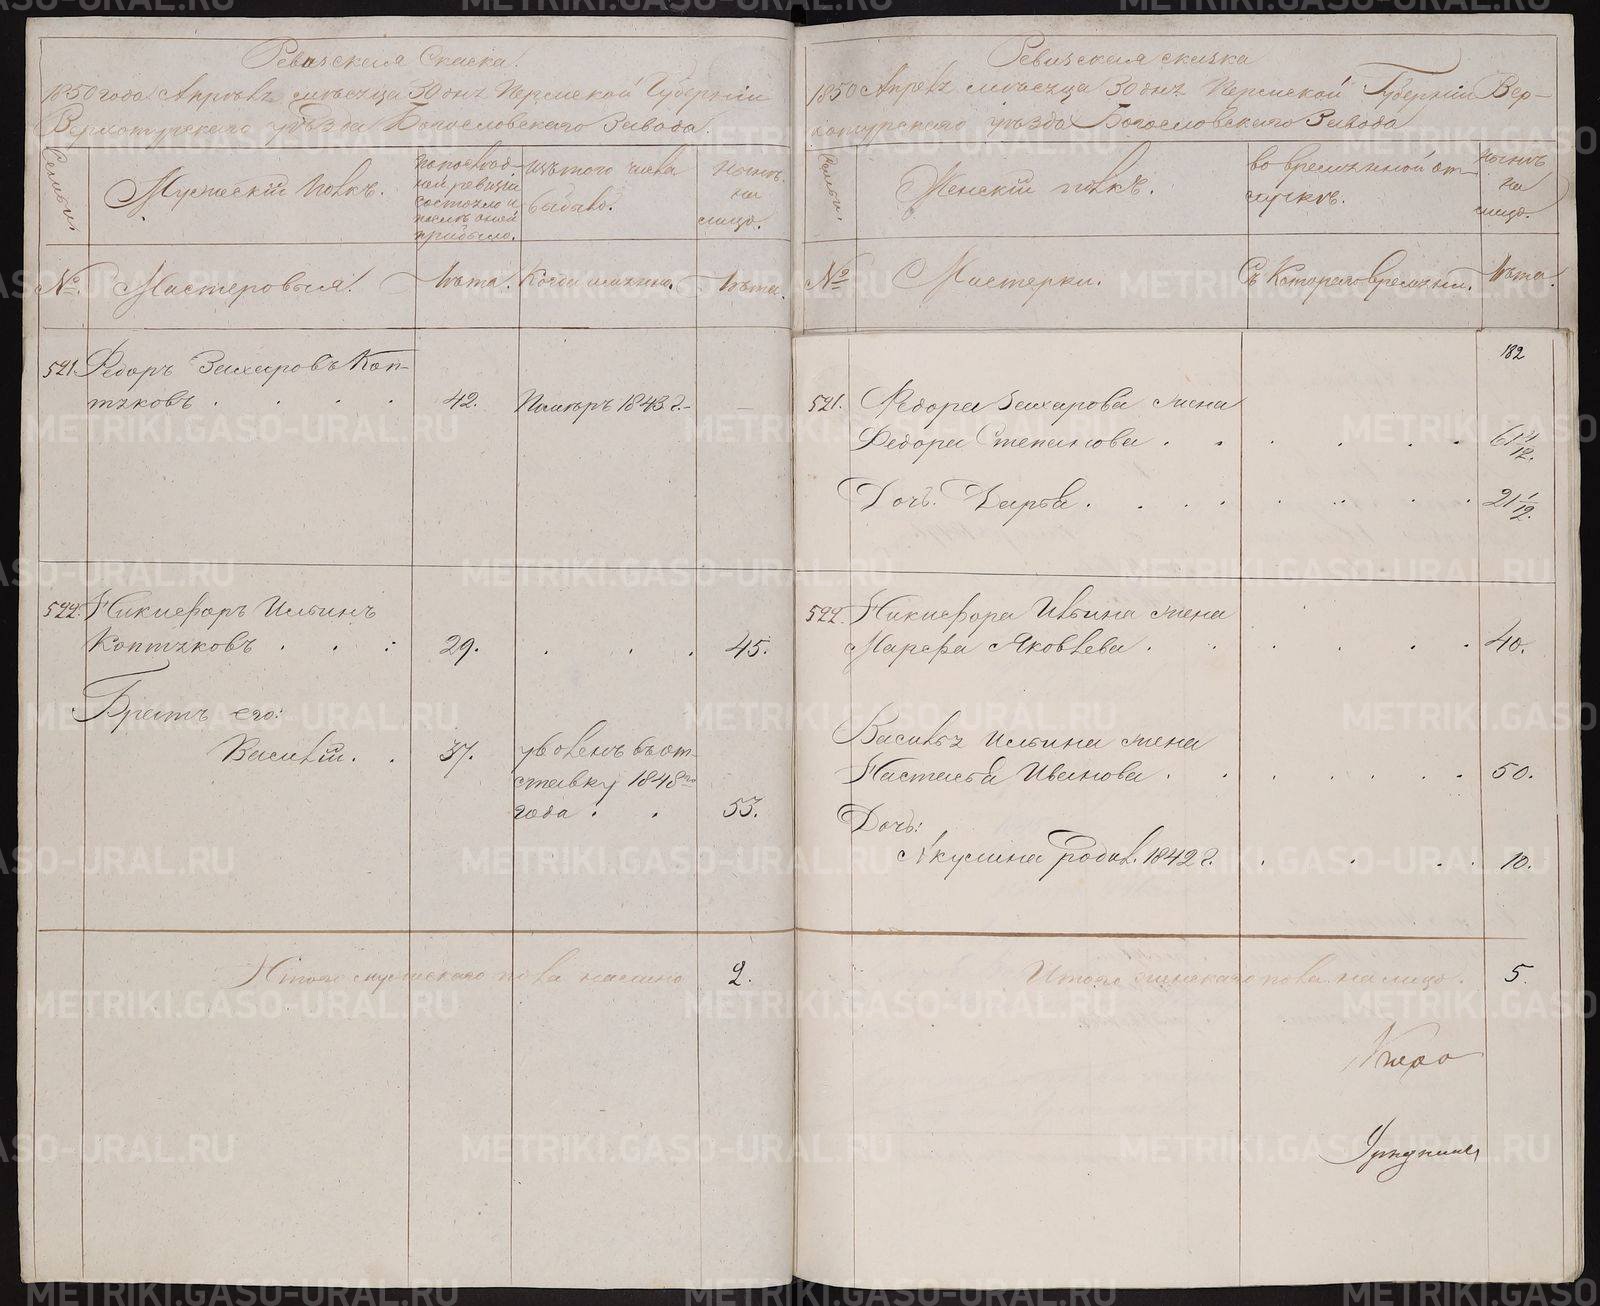 Ревизская Сказка.
1850 года Апрѣля мѣсяца 30 дня Пермской Губерніи
Верхотурскаго уѣзда Богословскаго Завода.
Семьи.
Мужескій полъ.
по послѣд-
ней ревизіи
состояло и
послѣ оной
прибыло.
Изъ того числа
выбыло.
Нынѣ
на
лицо.
№.
Мастеровыя.
Лѣта.
Когда именно.
Лѣта.
521. Федоръ Захаровъ Коп-
тяковъ . . . . 42. 1843 г. —
522. Никифоръ Ильинъ
Коптяковъ . . : 29. . . . 45.
Братъ его:
Василій. . 37. уволенъ въ от-
ставку 1848го
года . . 53.
Итого мужескаго пола налицо 2.
Ревизская сказка
1850 Апрѣля мѣсяца 30 дня Пермской Губерніи Вер-
хотурскаго уѣзда Богословскаго Завода
Семьи.
Женскій полъ.
во временной от-
лучкѣ.
Нынѣ
на
лицо.
№
Мастерки.
Съ Котораго времяни.
Лѣта.
182
521. Федора Захарова жена
Федора Степанова . . . . . . 61 4/12.
Дочь. Дарья . . . . . . . 21 1/12.
522. Никифора Ильина жена
Марфа Яковлева . . . . . . 40.
Василья Ильина жена
Настасья Иванова . . . . . . 50.
Дочь:
Акулина родил. 1842 г. . . . . 10.
Итого женскаго пола на лицо. 5
METRIKI.GASO-URAL.RU